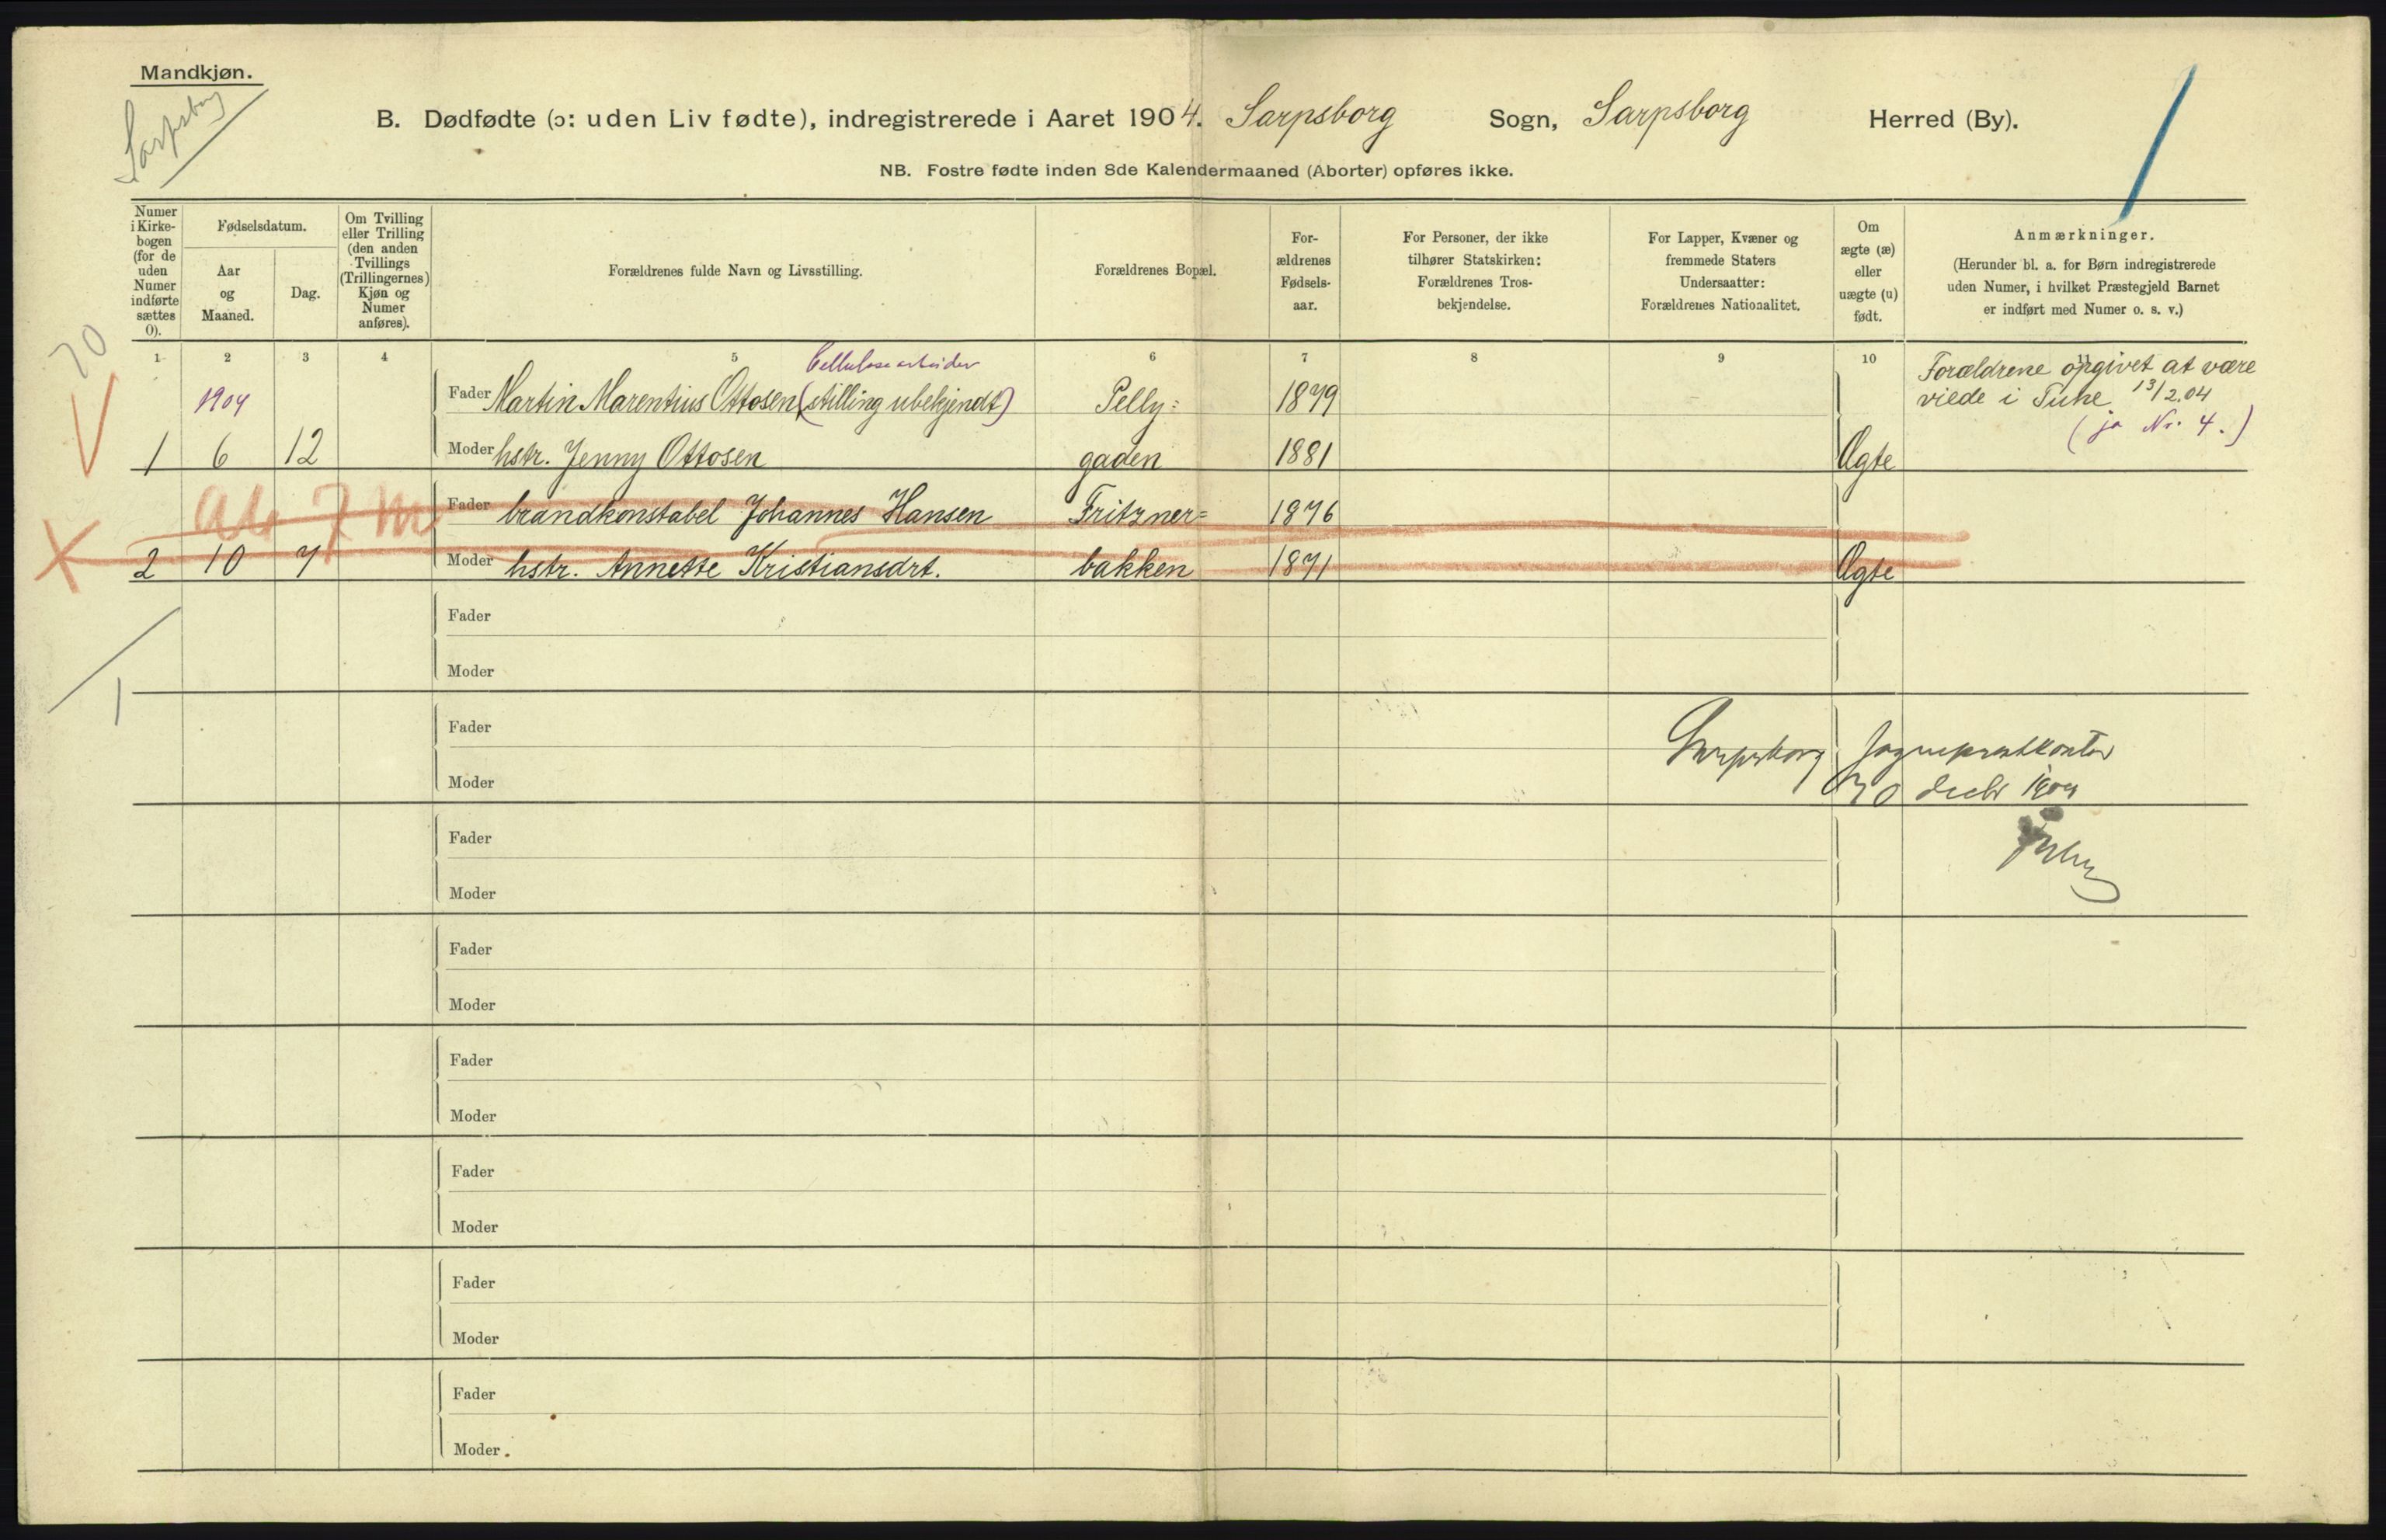 Mandkjøn.
Sarpsborg
B. Dødfødte (ɔ: uden Liv fødte), indregistrerede i Aaret 1904. Sarpsborg Sogn, Sarpsborg Herred (By).
NB. Fostre fødte inden 8de Kalendermaaned (Aborter) opføres ikke.
Numer i Kirke-bogen (for de uden Numer indførte sættes 0).
Fødselsdatum.
Aar og Maaned.
Dag.
Om Tvilling eller Trilling (den anden Tvillings (Trillingernes) Kjøn og Numer anføres).
Forældrenes fulde Navn og Livsstilling.
Forældrenes Bopæl.
For-ældrenes Fødsels-aar.
For Personer, der ikke tilhører Statskirken: Forældrenes Tros-bekjendelse.
For Lapper, Kvæner og fremmede Staters Undersaatter: Forældrenes Nationalitet.
Om ægte (æ) eller uægte (u) født.
Anmærkninger.
(Herunder bl. a. for Børn indregistrerede uden Numer, i hvilket Præstegjeld Barnet er indført med Numer o. s. v.)
1 2 3 4 5 6 7 8 9 10 11
Cellulosearbeider
1904 Fader Martin Marentius Ottosen (stilling ubekjendt) Pelly= 1879 Forældrene opgivet at være
viede i Tune 13/2.04
(ja Nr. 4.)
1 6 12 Moder hstr. Jenny Ottosen gaden 1881 Ægte
Fader brandkonstabel Johannes Hansen Fritzner= 1876
2 10 7 Moder hstr. Annette Kristiansdrt. bakken 1871 Ægte
Fader
Moder
1
Fader
Sarpsborg sogneprestkontor
Moder
30 decbr 1904
Fader
Moder
Fader
Moder
Fader
Moder
Fader
Moder
Fader
Moder
Fader
Moder.